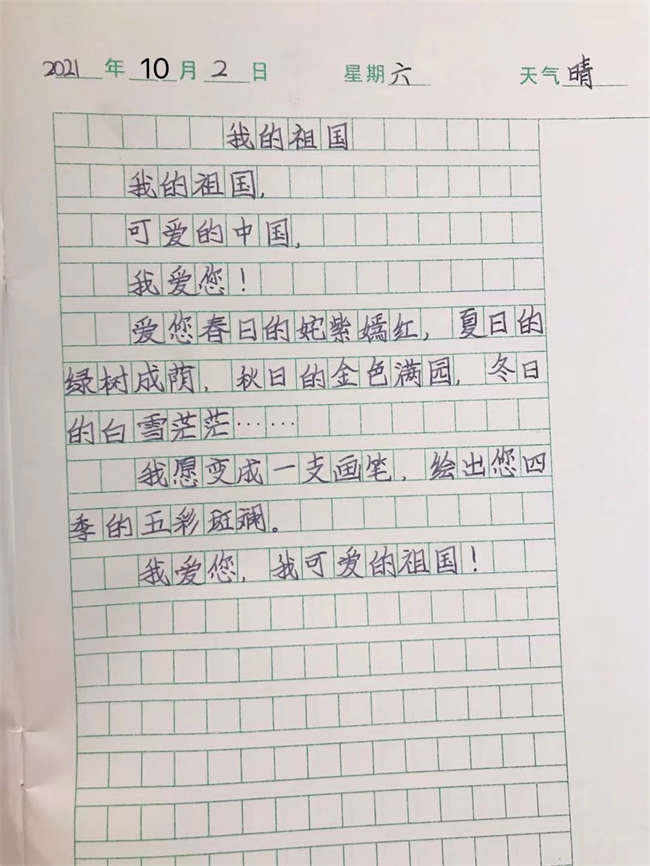 2021年10月2日 星期六 天气晴
我的祖国
我的祖国，
可爱的中国，
我爱您！
爱您春日的姹紫嫣红，夏日的
绿树成荫，秋日的金色满园，冬日
的白雪茫茫……
我愿变成一支画笔，绘出您四
季的五彩斑斓。
我爱您，我可爱的祖国！